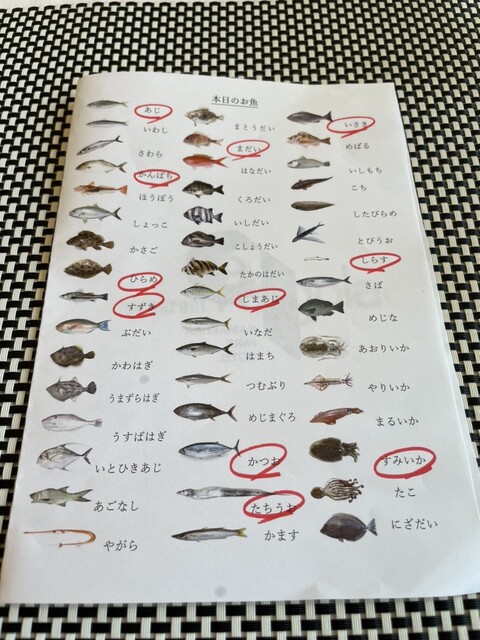 本日のお魚
あじ
いわし
さわら
かんぱち
ほうぼう
しょっこ
かさご
ひらめ
すずき
ぶだい
かわはぎ
うまずらはぎ
うすばはぎ
いとひきあじ
あごなし
やがら
まとうだい
まだい
はなだい
くろだい
いしだい
こしょうだい
たかのはだい
しまあじ
いなだ
はまち
つむぶり
めじまぐろ
かつお
たちうお
かます
いさき
めばる
いしもち
こち
したびらめ
とびうお
しらす
さば
めじな
あおりいか
やりいか
まるいか
すみいか
たこ
にざだい